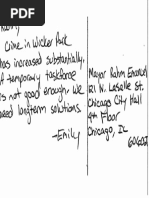 Crime in Wicker Park
has increased substantially,
temporary taskforce
is not good enough, we
need longterm solutions.
-Emily
Mayor Rahm Emanuel
121 N. LaSalle St.
Chicago City Hall
4th Floor
Chicago, IL